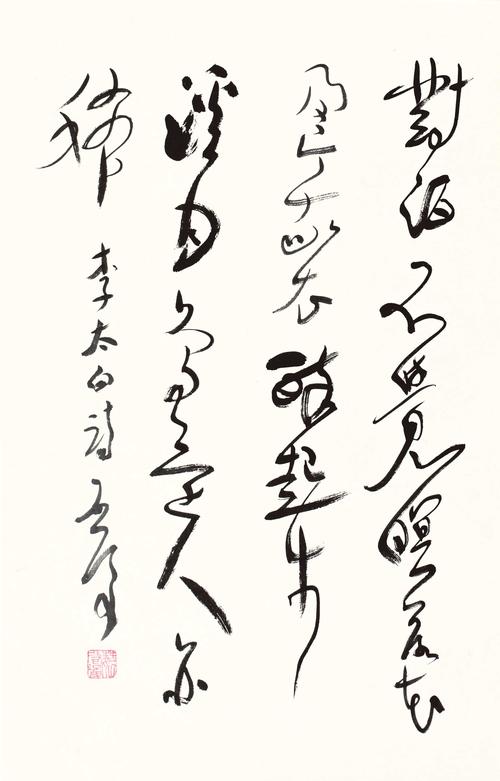 對酒不覺暝落花
盈我衣醉起步
溪月鳥還人亦
稀 李太白詩